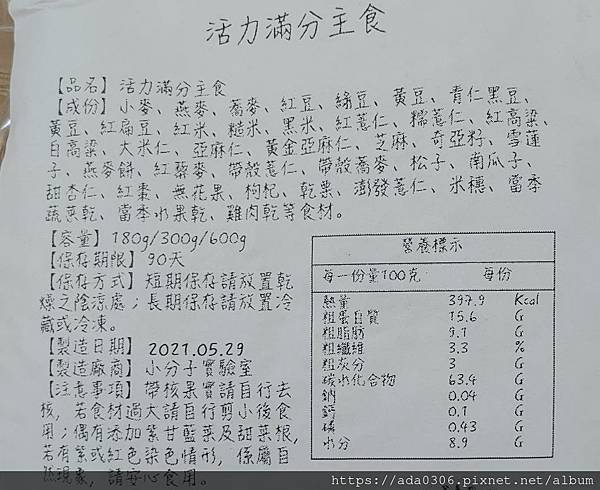 活力滿分主食
【品名】活力滿分主食
【成份】小麥、燕麥、蕎麥、紅豆、綠豆、黃豆、青仁黑豆、
黃豆、紅扁豆、紅米、糙米、黑米、紅薏仁、糯薏仁、紅高粱、
白高粱、大米仁、亞麻仁、黃金亞麻仁、芝麻、奇亞籽、雪蓮
子、燕麥餅、紅藜麥、帶殼薏仁、帶殼蕎麥、松子、南瓜子、
甜杏仁、紅棗、無花果、枸杞、乾果、澎發薏仁、米穗、當季
蔬菜乾、當季水果乾、雞肉乾等食材。
【容量】180g/300g/600g
【保存期限】90天
【保存方式】短期保存請放置乾
燥之陰涼處；長期保存請放置冷
藏或冷凍。
【製造日期】2021.05.29
【製造廠商】小分子實驗室
【注意事項】帶核果實請自行去
核，若食材過大請自行剪小後食
用；偶有添加紫甘藍菜及甜菜根，
若有紫或紅色染色情形，係屬自
然現象，請安心食用。
營養標示
每一份量100克 每份
熱量 397.9 Kcal
粗蛋白質 15.6 G
粗脂肪 9.1 G
粗纖維 3.3 %
粗灰分 3 G
碳水化合物 63.4 G
鈉 0.04 G
鈣 0.1 G
磷 0.43 G
水分 8.9 G
https://ada0306.pixnet.net/album